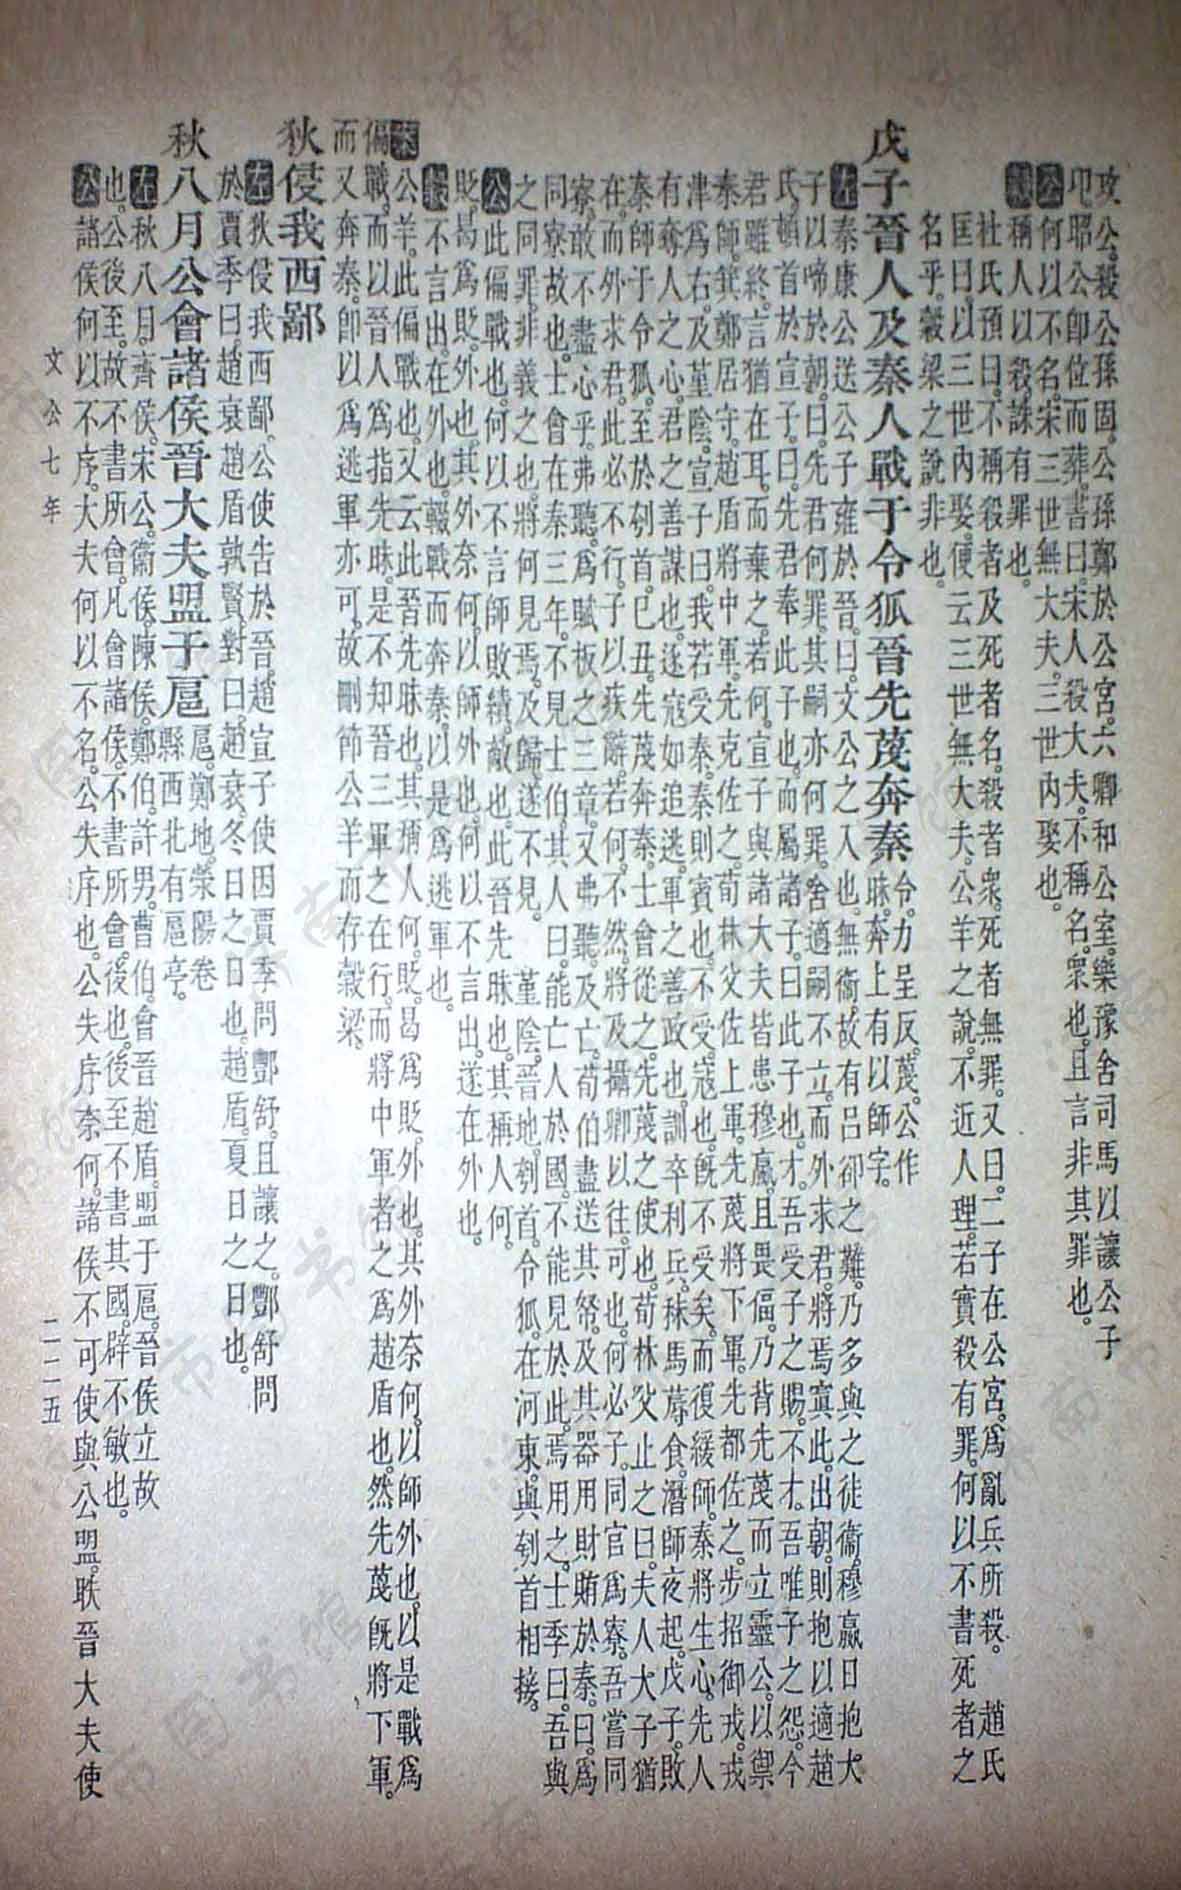 攻公。殺公孫固。公孫鄭於公宮。六卿和公室。樂豫舍司馬以讓公子
卬。昭公卽位而葬。書曰。宋人殺大夫。不稱名。衆也。且言非其罪也。
公何以不名。宋三世無大夫。三世內娶也。
稱人以殺。誅有罪也。
杜氏預曰。不稱殺者及死者名。殺者衆。死者無罪。又曰。二子在公宮。爲亂兵所殺。 趙氏
匡曰。以三世內娶。便云三世無大夫。公羊之說。不近人理。若實殺有罪。何以不書死者之
名乎。穀梁之說非也。
戊子晉人及秦人戰于令狐晉先蔑奔秦 令。力呈反。蔑。公作
昧。奔上有以師字。
左秦康公送公子雍於晉。曰。文公之入也。無衞。故有呂卻之難。乃多與之徒衞。穆嬴日抱大
子以啼於朝。曰。先君何罪。其嗣亦何罪。舍適嗣不立。而外求君。將焉寘此。出朝。則抱以適趙
氏。頓首於宣子。曰。先君奉此子也。而屬諸子。曰。此子也才。吾受子之賜。不才。吾唯子之怨。今
君雖終。言猶在耳。而棄之。若何。宣子與諸大夫皆患穆嬴。且畏偪。乃背先蔑而立靈公。以禦
秦師。箕鄭居守。趙盾將中軍。先克佐之。荀林父佐上軍。先蔑將下軍。先都佐之。步招御戎。戎
津爲右。及堇陰。宣子曰。我若受秦。秦則賓也。不受。寇也。旣不受矣。而復緩師。秦將生心。先人
有奪人之心。軍之善謀也。逐寇如追逃。軍之善政也。訓卒利兵。秣馬蓐食。潛師夜起。戊子。敗
秦師于令狐。至於刳首。己丑。先蔑奔秦。士會從之。先蔑之使也。荀林父止之。曰。夫人大子猶
在。而外求君。此必不行。子以疾辭。若何。不然。將及。攝卿以往。可也。何必子。同官爲寮。吾嘗同
寮。敢不盡心乎。弗聽。爲賦板之三章。又弗聽。及亡。荀伯盡送其帑。及其器用財賄於秦。曰。爲
同寮故也。士會在秦三年。不見士伯。其人曰。能亡人於國。不能見於此。焉用之。士季曰。吾與
之同罪。非義之也。將何見焉。及歸。遂不見。 堇陰。晉地。刳首。令狐。在河東。與刳首相接。
公此偏戰也。何以不言師敗績。敵也。此晉先昧也。其稱人何。
貶。曷爲貶。外也。其外奈何。以師外也。何以不言出。遂在外也。
不言出。在外也。輟戰而奔秦。以是爲逃軍也。
案公羊。此偏戰也。又云此晉先昧也。其稱人何。貶。曷爲貶。外也。其外奈何。以師外也。以是戰爲
偏戰。而以晉人爲指先昧。是不知晉三軍之在行。而將中軍者之爲趙盾也。然先蔑旣將下軍。
而又奔秦。卽以爲逃軍亦可。故刪節公羊而存穀梁。
狄侵我西鄙
左狄侵我西鄙。公使告於晉。趙宣子使因賈季問酆舒。且讓之。酆舒問
於賈季曰。趙衰趙盾孰賢。對曰。趙衰。冬日之日也。趙盾。夏日之日也。
秋八月公會諸侯晉大夫盟于扈 扈。鄭地。滎陽卷
縣西北有扈亭。
左秋八月。齊侯。宋公。衞侯。陳侯。鄭伯。許男。曹伯。會晉趙盾。盟于扈。晉侯立故
也。公後至。故不書所會。凡會諸侯。不書所會。後也。後至不書其國。辟不敏也。
公諸侯何以不序。大夫何以不名。公失序也。公失序奈何。諸侯不可使與公盟。眣晉大夫使
文公七年
二二五